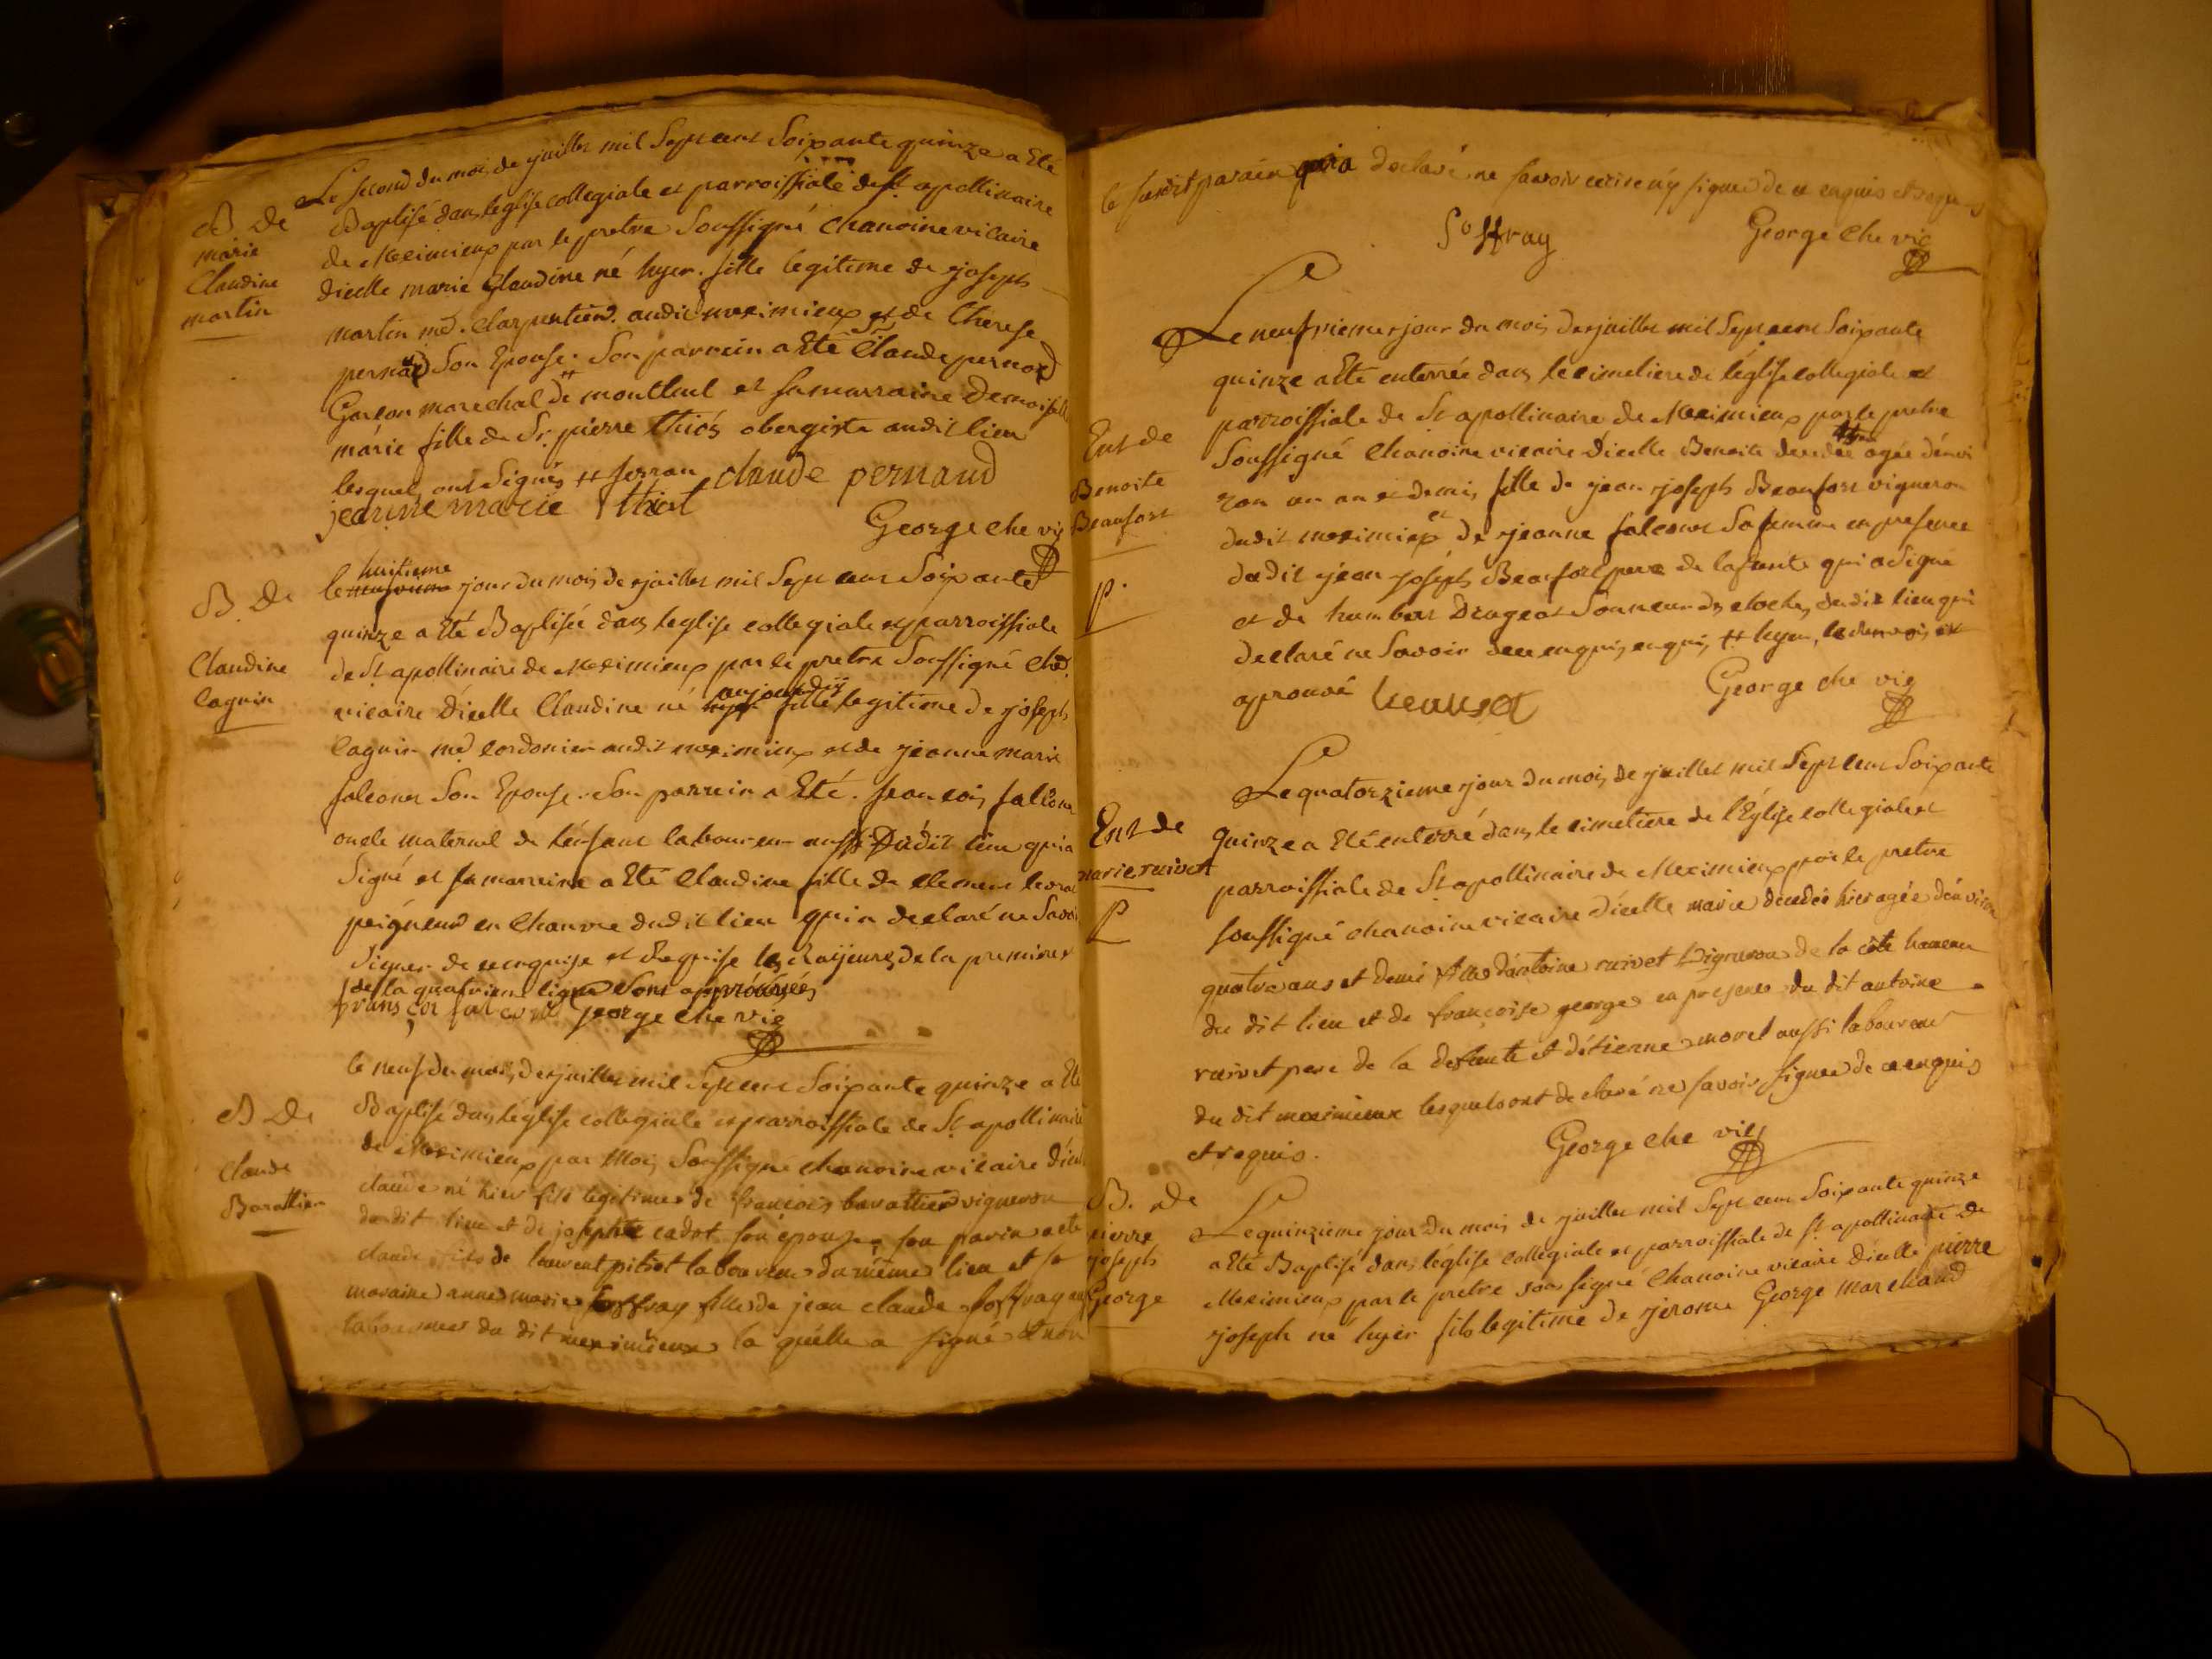 B. de
marie
Claudine
martin
Le second du mois de juillet mil Sept cent Soixante quinze a Eté
Baptisé dans leglise collegiale et parroissiale de St apollinaire
de Meximieux par le pretre Soussigné Chanoine vicaire
dicelle marie Claudine né hyer. fille legitime de joseph
martin md. Charpentier. audit meximieux et de Therese
pernad Son Epouse. Son parrein a Eté Claude pernod
Garcon marechal de montluel et sa marraine Demoiselle
marie fille de Sr. pierre thiós obergiste audit lieu
lesquels ont Signés claude pernaud
jeanne marie thiot
George che vic
B. De
Claudine
Caguin
huitieme
le neufvieme jour du mois de juillet mil Sept cent Soixante
quinze a Eté Baptisée dans leglise collegiale et parroissiale
de St apollinaire de Meximieux par le pretre Soussigné che.
vicaire dicelle Claudine né hyer aujourdhy fille legitime de joseph
Caguin md cordonier audit meximieux et de jeanne marie
falconet Son Epouse. Son parrein a Eté. francois falcone
oncle maternel de lenfant laboureur aussi Dudit lieu qui a
Signé et sa marreine a Eté Claudine fille de clement levrat
peigneur en Chanvre dudit lieu qui a declaré ne Savoir
Signer de ce enquise et Requise les Rayeures de la premiere
de la quatrieme ligne Sont approuvées
frans cois falcone George che vic
B De
Claude
Barattier
le neuf du mois de juillet mil Sept cent Soixante quinze a Eté
Baptisé dans leglise collegiale et parroissiale de St apollinaire
de Meximieux par Moi Soussigné chanoine vicaire dicelle
claude né hier fils legitime de françois barattier vigneron
dudit lieu et de josephte cadot son epouse son parin a eté
claude fils de laurent pitiot laboureur du même lieu et sa
maraine anne marie soffray fille de jean claude soffray
laboureur du dit meximieux la quelle a signé et non
le susdit parain qui a declaré ne savoir ecrire n'y signer de ce enquis et requis
Soffray George che vic
Ent de
Benoite
Beaufort
p.
Le neufvieme jour du mois de juillet mil Sept cent Soixante
quinze a Eté enterrée dans le cimetiere de l'église collegiale et
parroissiale de St apollinaire de Meximieux par le pretre
Soussigné Chanoine vicaire Dicelle Benoite decedée agée d'envi
ron un an et demi fille de jean joseph Beaufort vigneron
dudit meximieux et de jeanne falconet Sa femme en presence
dudit jean joseph Beaufort pere de la defunte qui a Signé
et de humbert Drageat Sonneur de cloches dudit lieu qui
declaré ne Savoir de ce enquis, hyer,
aprouvé George che vic
Ent de
marie ruivet
P
Le quatorzieme jour du mois de juillet mil Sept cent Soixante
quinze a Eté enterré dans le cimetiere de l'Église collegiale et
parroissiale de St apollinaire de Meximieux par le pretre
soussigné chanoine vicaire dicelle marie decedée hier agée denviron
quatre ans et demi fille d'antoine ruivet vigneron de la côte hameau
du dit lieu et de françoise george en presence du dit antoine
ruivet pere de la defunte et d'étienne morel aussi laboureur
du dit meximieux lesquels ont declaré ne savoir signer de ce enquis
et requis.
George che vic
B. de
pierre
joseph
George
Le quinzieme jour du mois de juillet mil Sept cent Soixante quinze
a Eté Baptisé dans l'église collegiale et parroissiale de St apollinaire de
Meximieux par le pretre sous signé Chanoine vicaire Dicelle pierre
joseph né hyer fils legitime de jerome George marchand